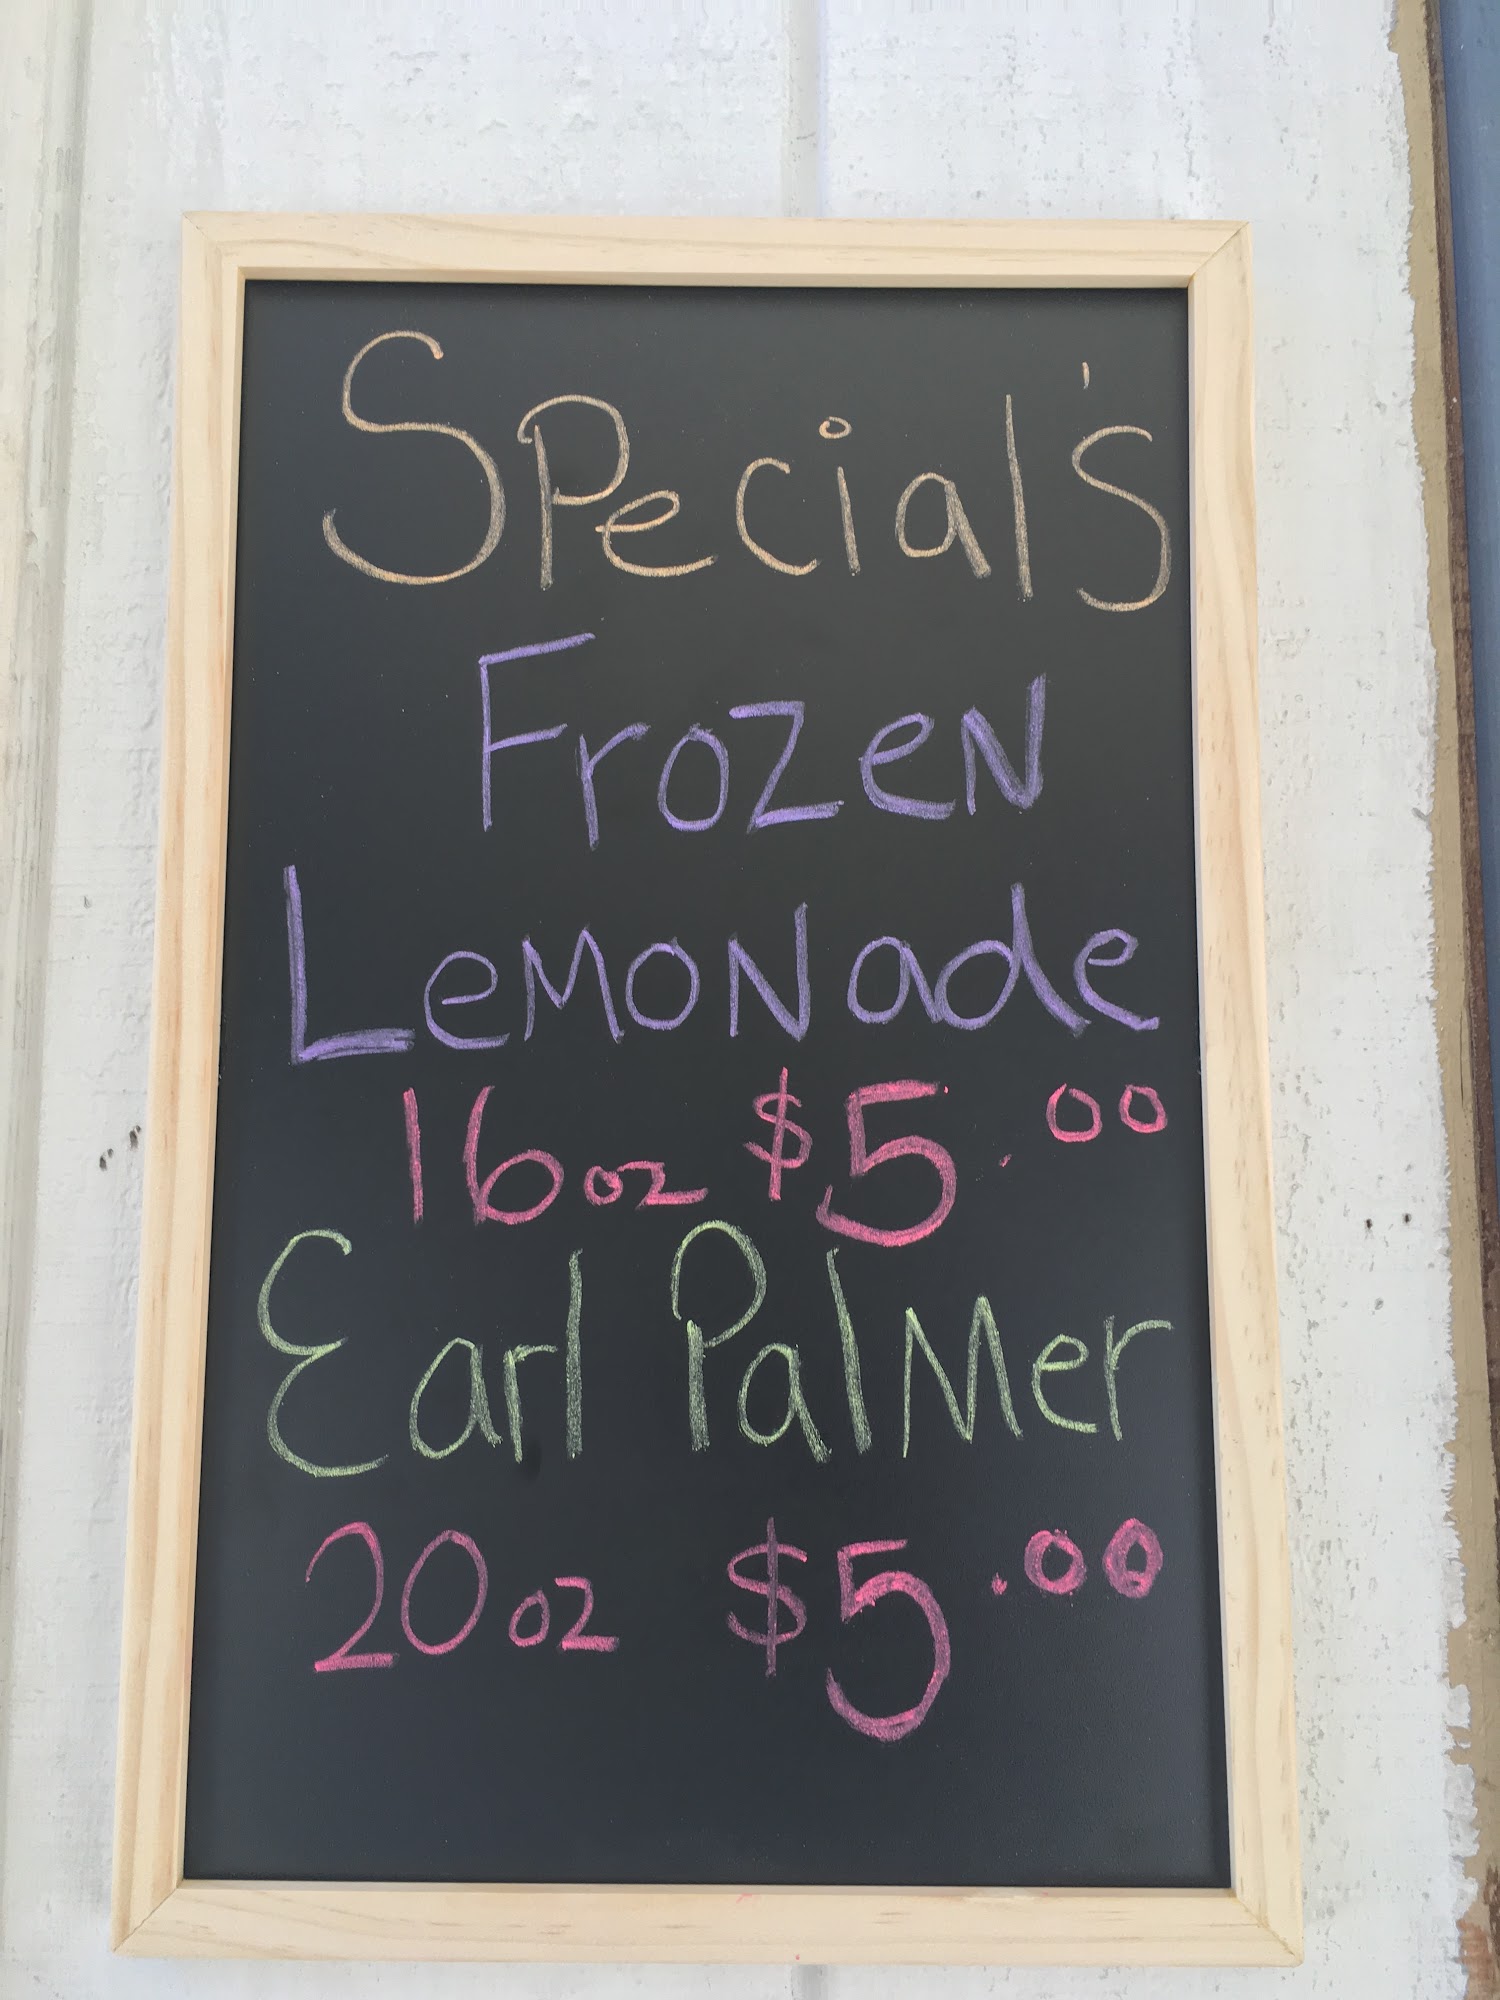 Special's
Frozen
Lemonade
16oz $5.00
Earl Palmer
20oz $5.00